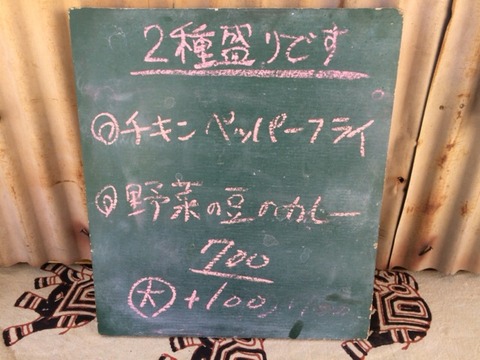 2種盛りです
⓪チキンペッパーフライ
⓪野菜の豆のカレー
700
㊅+100